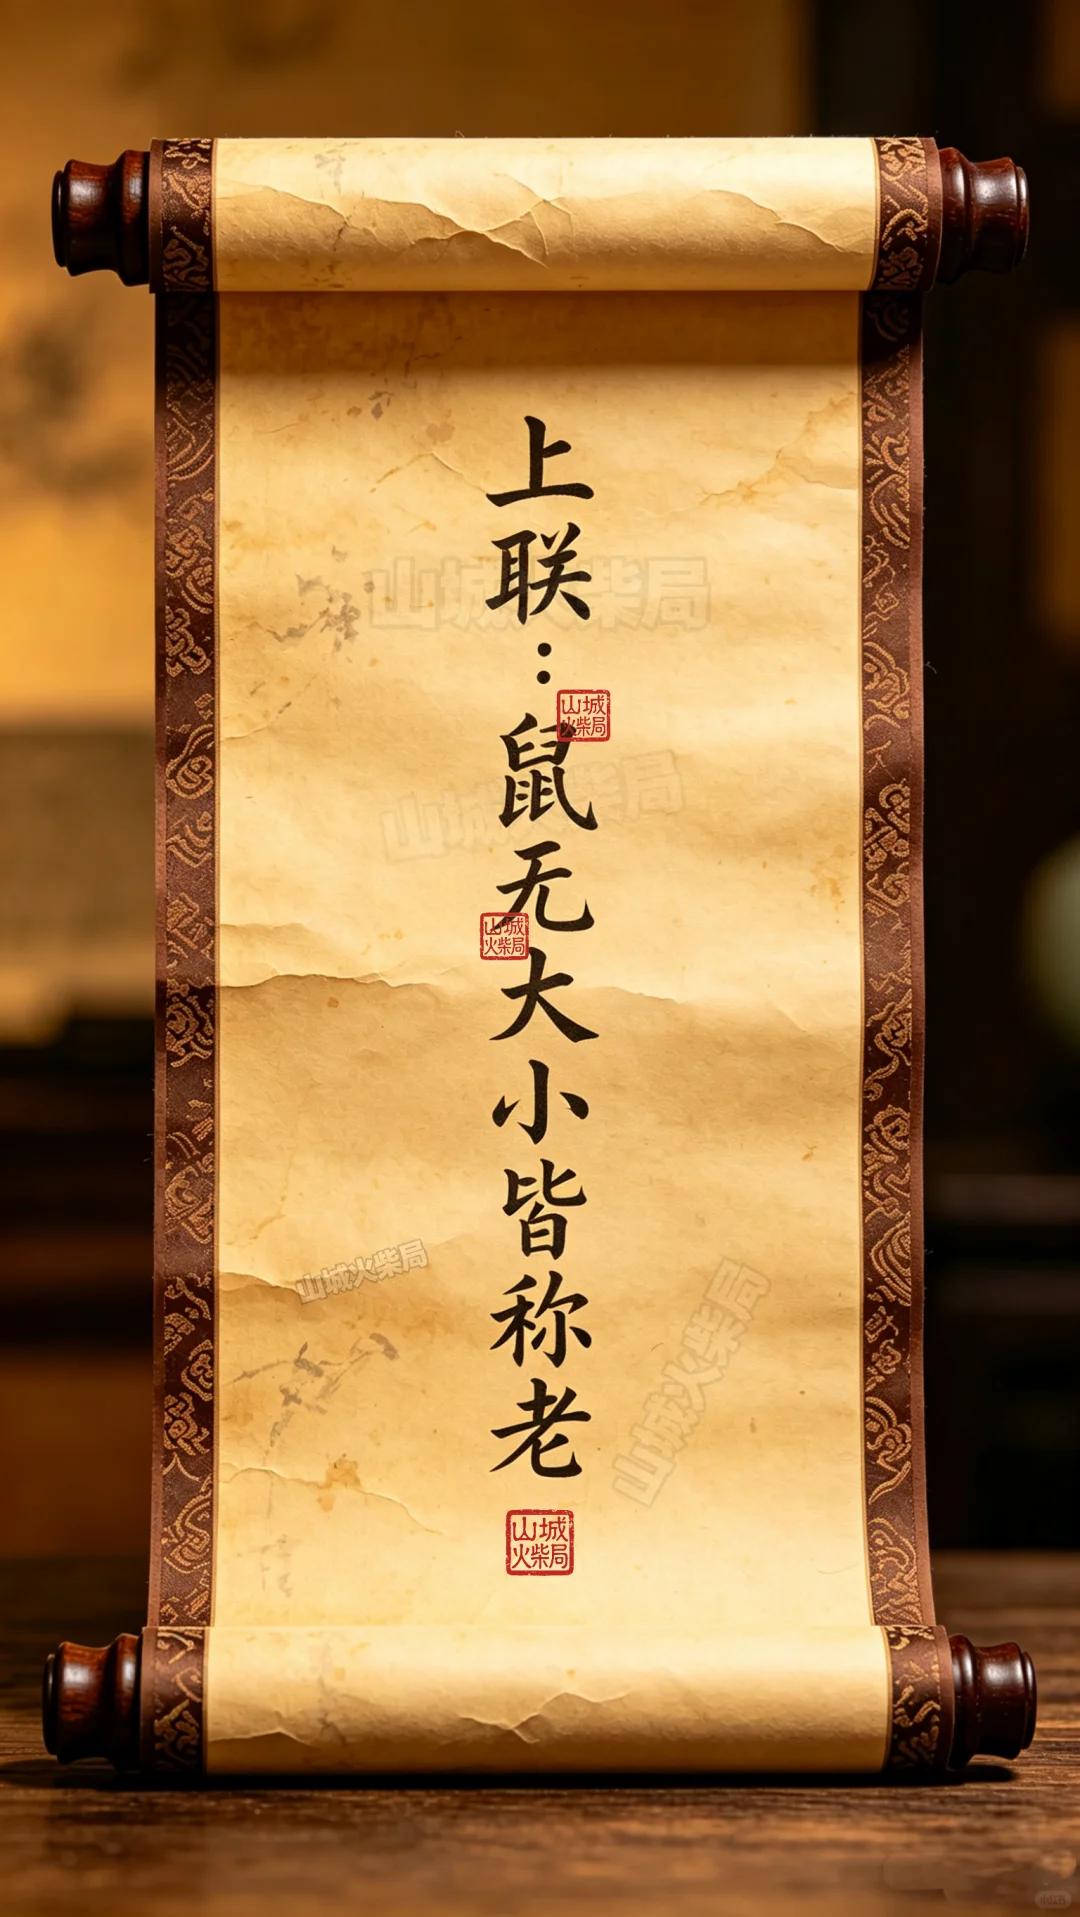 上联：鼠无大小皆称老
山城火柴局
山城火柴局
山城火柴局
山城火柴局
山城火柴局
山城火柴局
山城火柴局